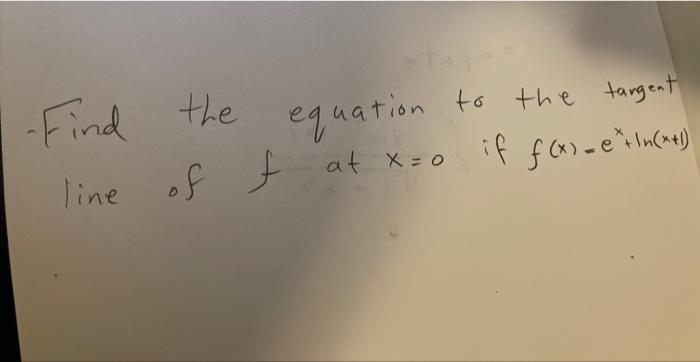 -Find the equation to the tangent
line of f at x=0 if f(x)=e^x+ln(x+1)